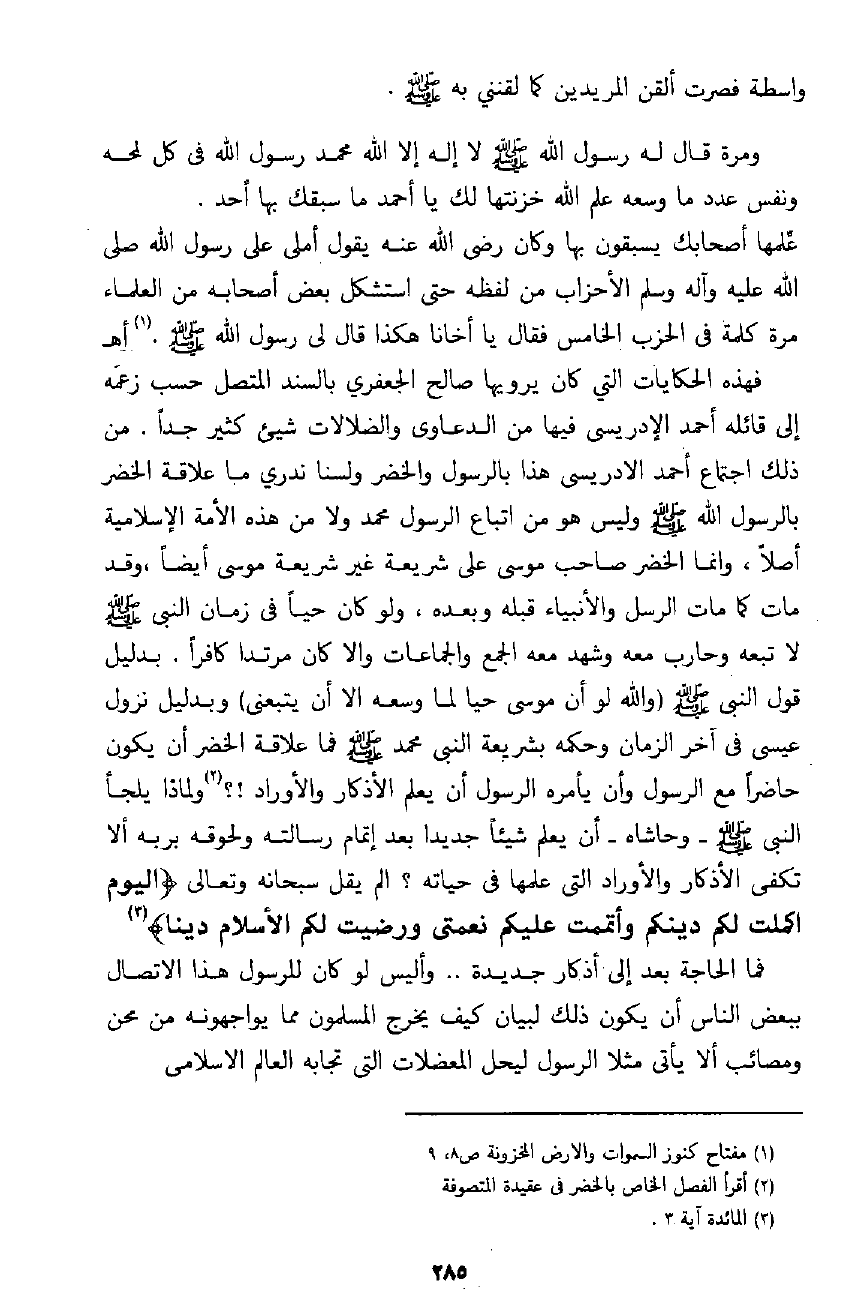 واسطة فصرت ألقن المريدين كما لقنني به ﷺ .
ومرة قال له رسول الله ﷺ لا إله إلا الله محمد رسول الله فى كل لمحه
ونفس عدد ما وسعه علم الله خزنتها لك يا أحمد ما سبقك بها أحد .
علّمها أصحابك يسبقون بها وكان رضى الله عنه يقول أملى على رسول الله صلى
الله عليه وآله وسلم الأحزاب من لفظه حتى استشكل بعض أصحابه من العلماء
مرة كلمة فى الحزب الخامس فقال يا أخانا هكذا قال لى رسول الله ﷺ .(١) أهـ
فهذه الحكايات التي كان يرويها صالح الجعفري بالسند المتصل حسب زعمه
إلى قائله أحمد الإدريسى فيها من الدعاوى والضلالات شيئ كثير جداً . من
ذلك اجتماع أحمد الادريسى هذا بالرسول والخضر ولسنا ندري ما علاقة الخضر
بالرسول الله ﷺ وليس هو من اتباع الرسول محمد ولا من هذه الأمة الإسلامية
أصلاً ، وانما الخضر صاحب موسى على شريعة غير شريعة موسى أيضاً ،وقد
مات كما مات الرسل والأنبياء قبله وبعده ، ولو كان حياً فى زمان النبى ﷺ
لا تبعه وحارب معه وشهد معه الجمع والجماعات والا كان مرتدا كافراً . بدليل
قول النبى ﷺ (والله لو أن موسى حيا لما وسعه الا أن يتبعنى) وبدليل نزول
عيسى فى آخر الزمان وحكمه بشريعة النبي محمد ﷺ فما علاقة الخضر أن يكون
حاضراً مع الرسول وأن يأمره الرسول أن يعلم الأذكار والأوراد !؟(٢) ولماذا يلجأ
النبى ﷺ ـ وحاشاه ـ أن يعلم شيئاً جديدا بعد إتمام رسالته ولحوقه بربه ألا
تكفى الأذكار والأوراد التى علمها فى حياته ؟ الم يقل سبحانه وتعالى ﴿اليوم
اكملت لكم دينكم وأتممت عليكم نعمتى ورضيت لكم الأسلام دينا﴾(٣)
فما الحاجة بعد إلى أذكار جديدة .. وأليس لو كان للرسول هذا الاتصال
ببعض الناس أن يكون ذلك لبيان كيف يخرج المسلمون مما يواجهونه من محن
ومصائب ألا يأتى مثلا الرسول ليحل المعضلات التى تجابه العالم الاسلامى
(١) مفتاح كنوز السموات والارض المخزونة ص٨، ٩
(٢) أقرأ الفصل الخاص بالخضر فى عقيدة المتصوفة
(٣) المائدة آية ٣ .
٢٨٥